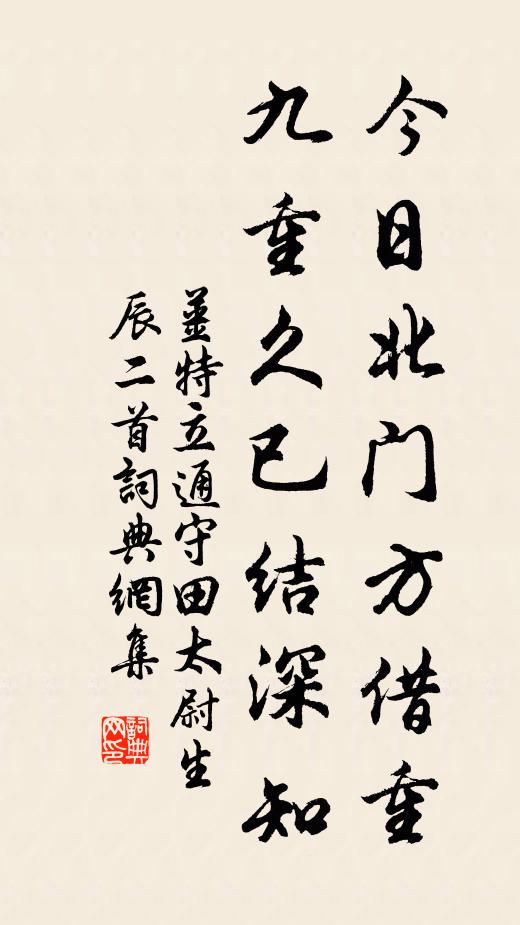 今日北门方借重
九重久已结深知
薑特立通守田太尉生
辰二首詞典網集
詞典
网印